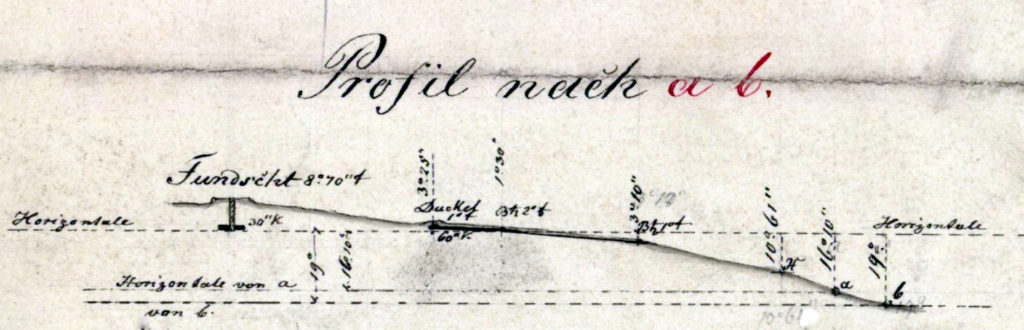 Profil nach a b.
Fundscht 8°70"t
3°25"
1°30"
3°10"
Duckel
1°t
Bh 2°t
Bh 1°t
10°61"
16°10"
19°
Horizontale
30"K
60"K
Horizontale
19°
16.10°
H
a
b
Horizontale von a
von b.
10°61"